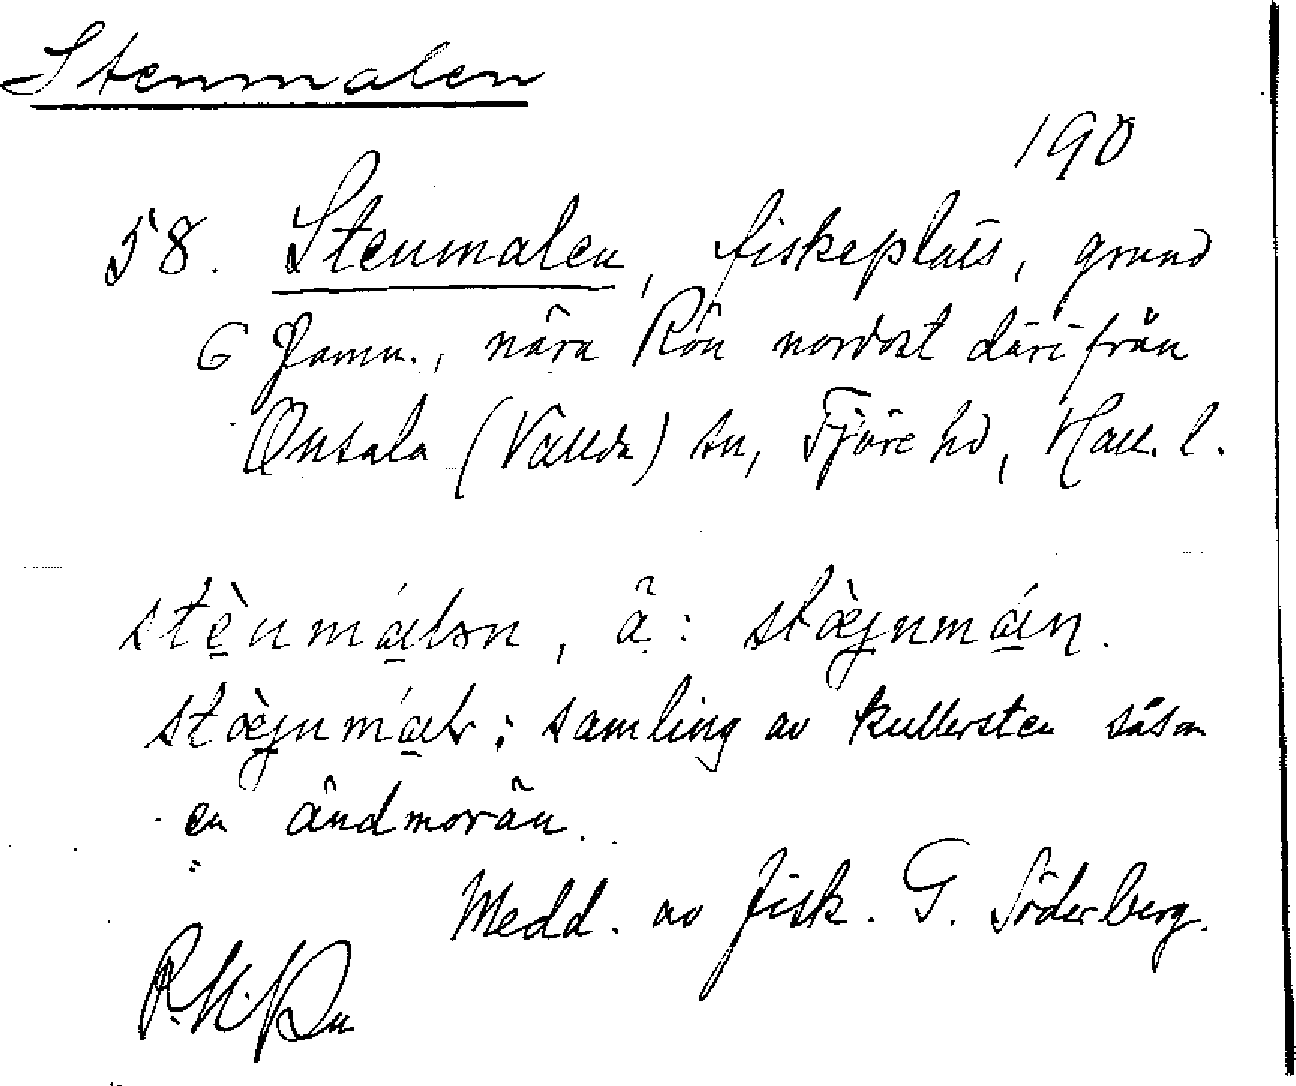 Stenmalen
190
58. Stenmalen, fiskeplats, grund
6 famn., nära Rön nordost därifrån
Onsala (Vallda) sn, Fjäre hd, Hall. l.
stènmáln, ä: stæ̀jnmáln.
stæ̀jnmál: samling av kullersten såsom
en ändmorän.
Medd. av fisk. G. Söderberg.